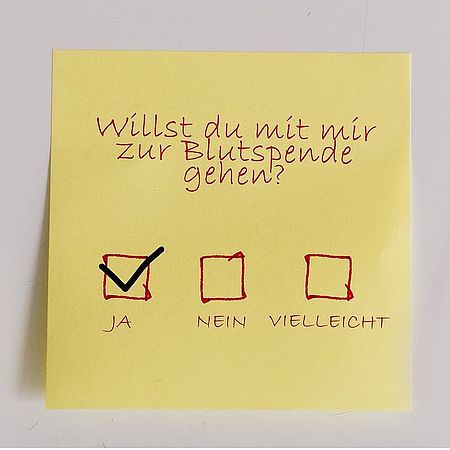 Willst du mit mir
zur Blutspende
gehen?
JA NEIN VIELLEICHT